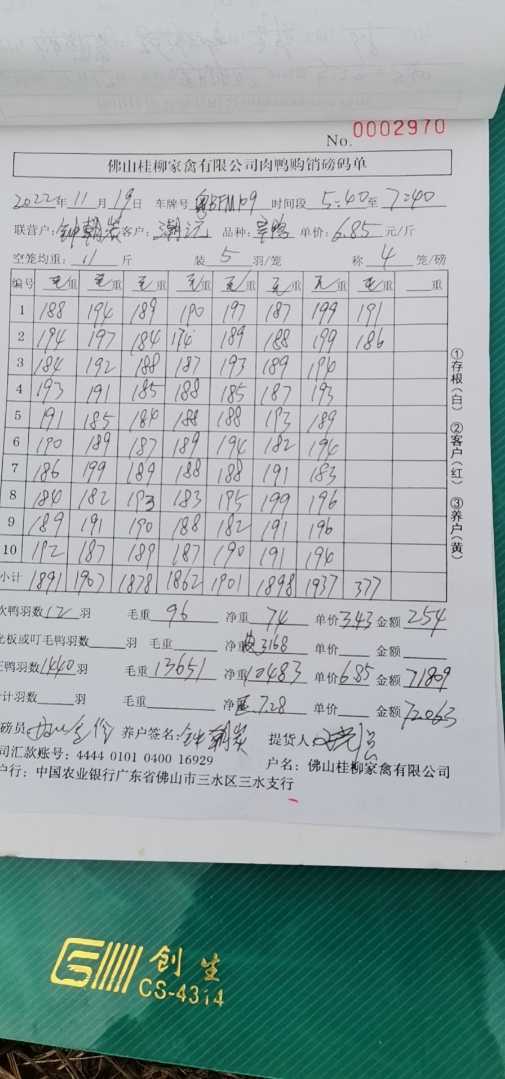 No. 0002970
佛山桂柳家禽有限公司肉鸭购销磅码单
2022年 11月 19日 车牌号 粤BFM109 时间段 5:40至 7:40
联营户: 钟 客户: 潮沅 品种: 单价: 6.85 元/斤
空笼均重: 11 斤 装 5 羽/笼 称 4 笼/磅
编号 毛重 毛重 毛重 毛重 毛重 毛重 毛重 毛重 重
1 188 194 189 190 197 187 199 191
2 194 197 184 174 189 188 199 186
3 184 192 188 187 193 189 194
4 193 191 185 188 185 187 193
5 191 185 184 188 188 193 189
6 190 189 187 189 194 182 194
7 186 199 189 188 188 191 183
8 184 182 193 183 195 199 196
9 189 191 190 188 182 191 196
10 192 187 189 187 190 191 194
小计 1891 1907 1878 1862 1901 1898 1937 377
次鸭羽数 12 羽 毛重 96 净重 74 单价 3.43 金额 254
光板或叮毛鸭羽数 羽 毛重 净重 皮3168 单价 金额
正鸭羽数 1440 羽 毛重 13651 净重 10483 单价 6.85 金额 71809
合计羽数 羽 毛重 净重 7.28 单价 金额 72063
磅员 养户签名: 钟 提货人
司汇款账号: 4444 0101 0400 16929 户名: 佛山桂柳家禽有限公司
户行: 中国农业银行广东省佛山市三水区三水支行
①存根(白) ②客户(红) ③养户(黄)
创生
CS-4314